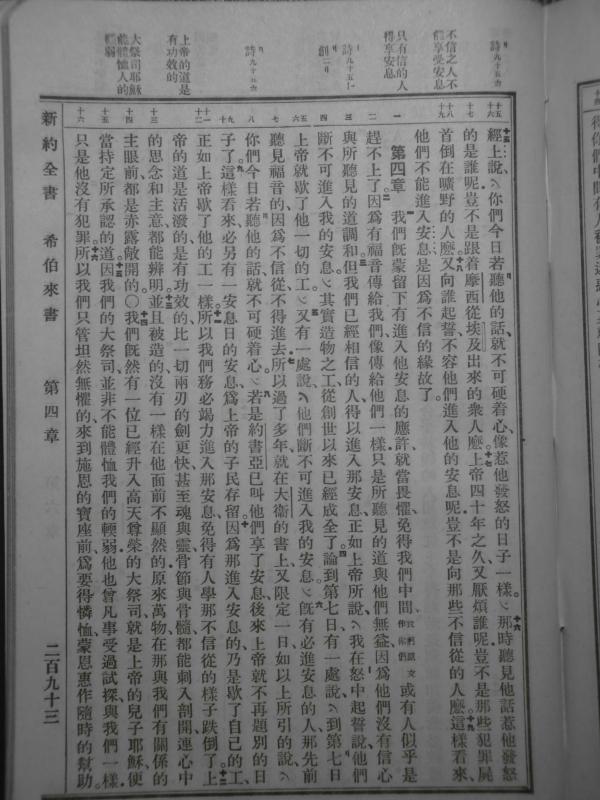 詩九十五 六
不信之人不能享受安息
只有信的人得享安息
詩九十五 十一
創二 二
詩九十五 六
上帝的道是有功效的
大祭司耶穌能體恤人的輭弱
經上說、你們今日若聽他的話、就不可硬着心、像惹他發怒的日子一樣、那時聽見他話惹他發怒
的是誰呢、豈不是跟着摩西從埃及出來的衆人麽、上帝四十年之久、又厭煩誰呢、豈不是那些犯罪屍
首倒在曠野的人麽、又向誰起誓、不容他們進入他的安息呢、豈不是向那些不信從的人麽、這樣看來
他們不能進入安息、是因爲不信的緣故了。
第四章 我們旣蒙留下有進入他安息的應許、就當畏懼、免得我們中間、我們原文作你們 或有人似乎是
趕不上了、因爲有福音傳給我們、像傳給他們一樣、只是所聽見的道與他們無益、因爲他們沒有信心
與所聽見的道調和、但我們已經相信的人、得以進入那安息、正如上帝所說、我在怒中起誓說、他們
斷不可進入我的安息、其實造物之工、從創世以來已經成全了、論到第七日、有一處說、到第七日
上帝就歇了他一切的工、又有一處說、他們斷不可進入我的安息、旣有必進安息的人、那先前
聽見福音的、因爲不信從、不得進去、所以過了多年、就在大衞的書上、又限定一日、如以上所引的說、
你們今日若聽他的話、就不可硬着心、若是約書亞已叫他們享了安息、後來上帝就不再題別的日
子了、這樣看來、必另有一安息日的安息、爲上帝的子民存留、因爲那進入安息的、乃是歇了自己的工、
正如上帝歇了他的工一樣、所以我們務必竭力進入那安息、免得有人學那不信從的樣子跌倒了、上
帝的道是活潑的、是有功效的、比一切兩刃的劍更快、甚至魂與靈、骨節與骨髓、都能刺入剖開、連心中
的思念和主意、都能辨明、並且被造的、沒有一樣在他面前不顯然的、原來萬物、在那與我們有關係的
主眼前、都是赤露敞開的。〇我們旣然有一位已經升入高天尊榮的大祭司、就是上帝的兒子耶穌、便
當持定所承認的道、因我們的大祭司、並非不能體恤我們的輭弱、他也曾凡事受過試探、與我們一樣、
只是他沒有犯罪、所以我們只管坦然無懼的、來到施恩的寶座前、爲要得憐恤、蒙恩惠作隨時的幫助。
新約全書 希伯來書 第四章 二百九十三